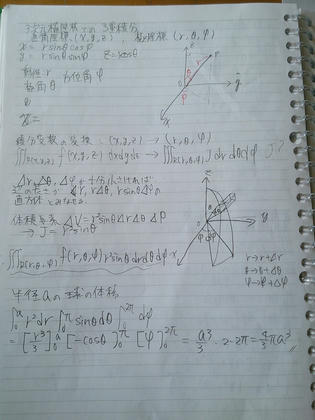 3次元極座標での3重積分
直角座標 (x, y, z), 極座標 (r, θ, φ)
x = r sinθ cosφ
y = r sinθ sinφ   z = r cosθ
動径 r 方位角 φ
極角 θ
積分変数の変換: (x, y, z) → (r, θ, φ)
∭R(x,y,z) f(x, y, z) dxdydz → ∭R(r,θ,φ) J dr dθ dφ   J?
Δr, Δθ, Δφ が十分小さければ
Δr, rΔθ, r sinθ Δφ の
直方体とみなせる
体積要素 ΔV = r² sinθ Δr Δθ Δφ
→ J = r² sinθ
∭R(r,θ,φ) f(r, θ, φ) r² sinθ dr dθ dφ
r→r+Δr
θ→θ+Δθ
φ→φ+Δφ
半径 a の球の体積
∫₀ᵃ r² dr ∫₀^π sinθ dθ ∫₀^2π dφ
= [r³/3]₀ᵃ [-cosθ]₀^π [φ]₀^2π = a³/3 · 2 · 2π = 4/3 πa³